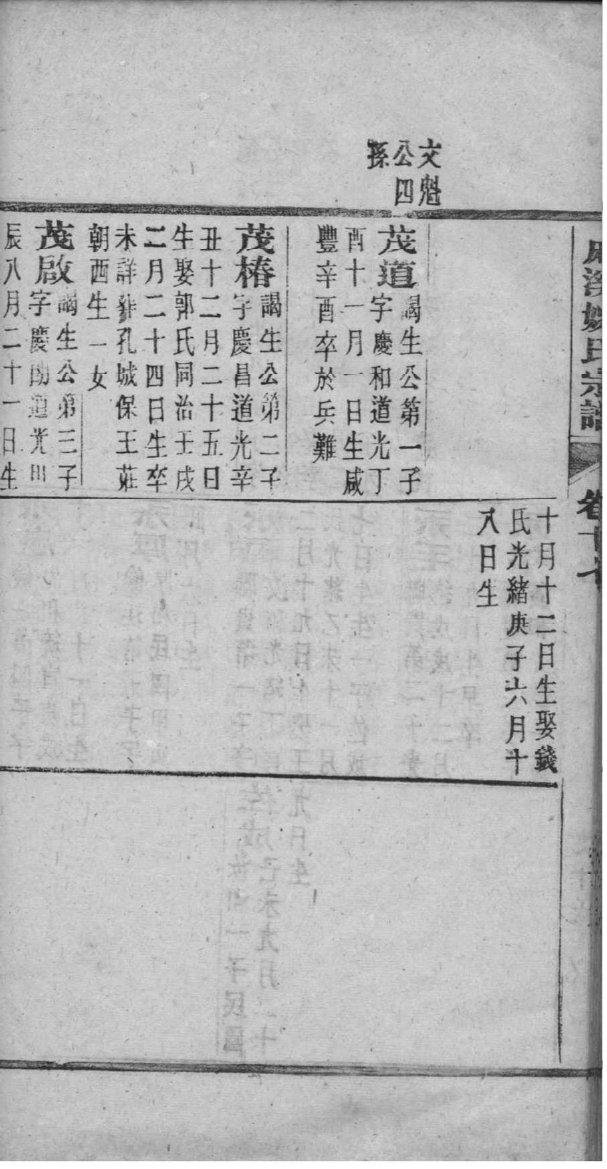 麻溪姚氏宗譜
卷十七
文魁
公四
孫
茂道
謁生公第一子
字慶和道光丁
酉十一月一日生咸
豐辛酉卒於兵難
茂椿
謁生公第二子
字慶昌道光辛
丑十二月二十五日
生娶郭氏同治壬戌
二月二十四日生卒
未詳葬孔城保王莊
朝酉生一女
茂啟
謁生公第三子
字慶勛道光甲
辰八月二十一日生
十月十二日生娶錢
氏光緒庚子六月十
八日生